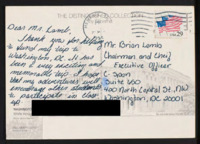 THE DISTINGUISHED COLLECT
29
Dear Mr. Lamb,
Thank you for helping
to fund my trip to
Washington, DC. It has
been a very exciting and
memorable trip. I hope
my adventures will
encourage other students
to participate in Close
Up
Mr Brian Lamb
Chairman and Chief
Executive Officer
C-Span
Suite 650
400 North Capital St. NW
Washington, DC 20001